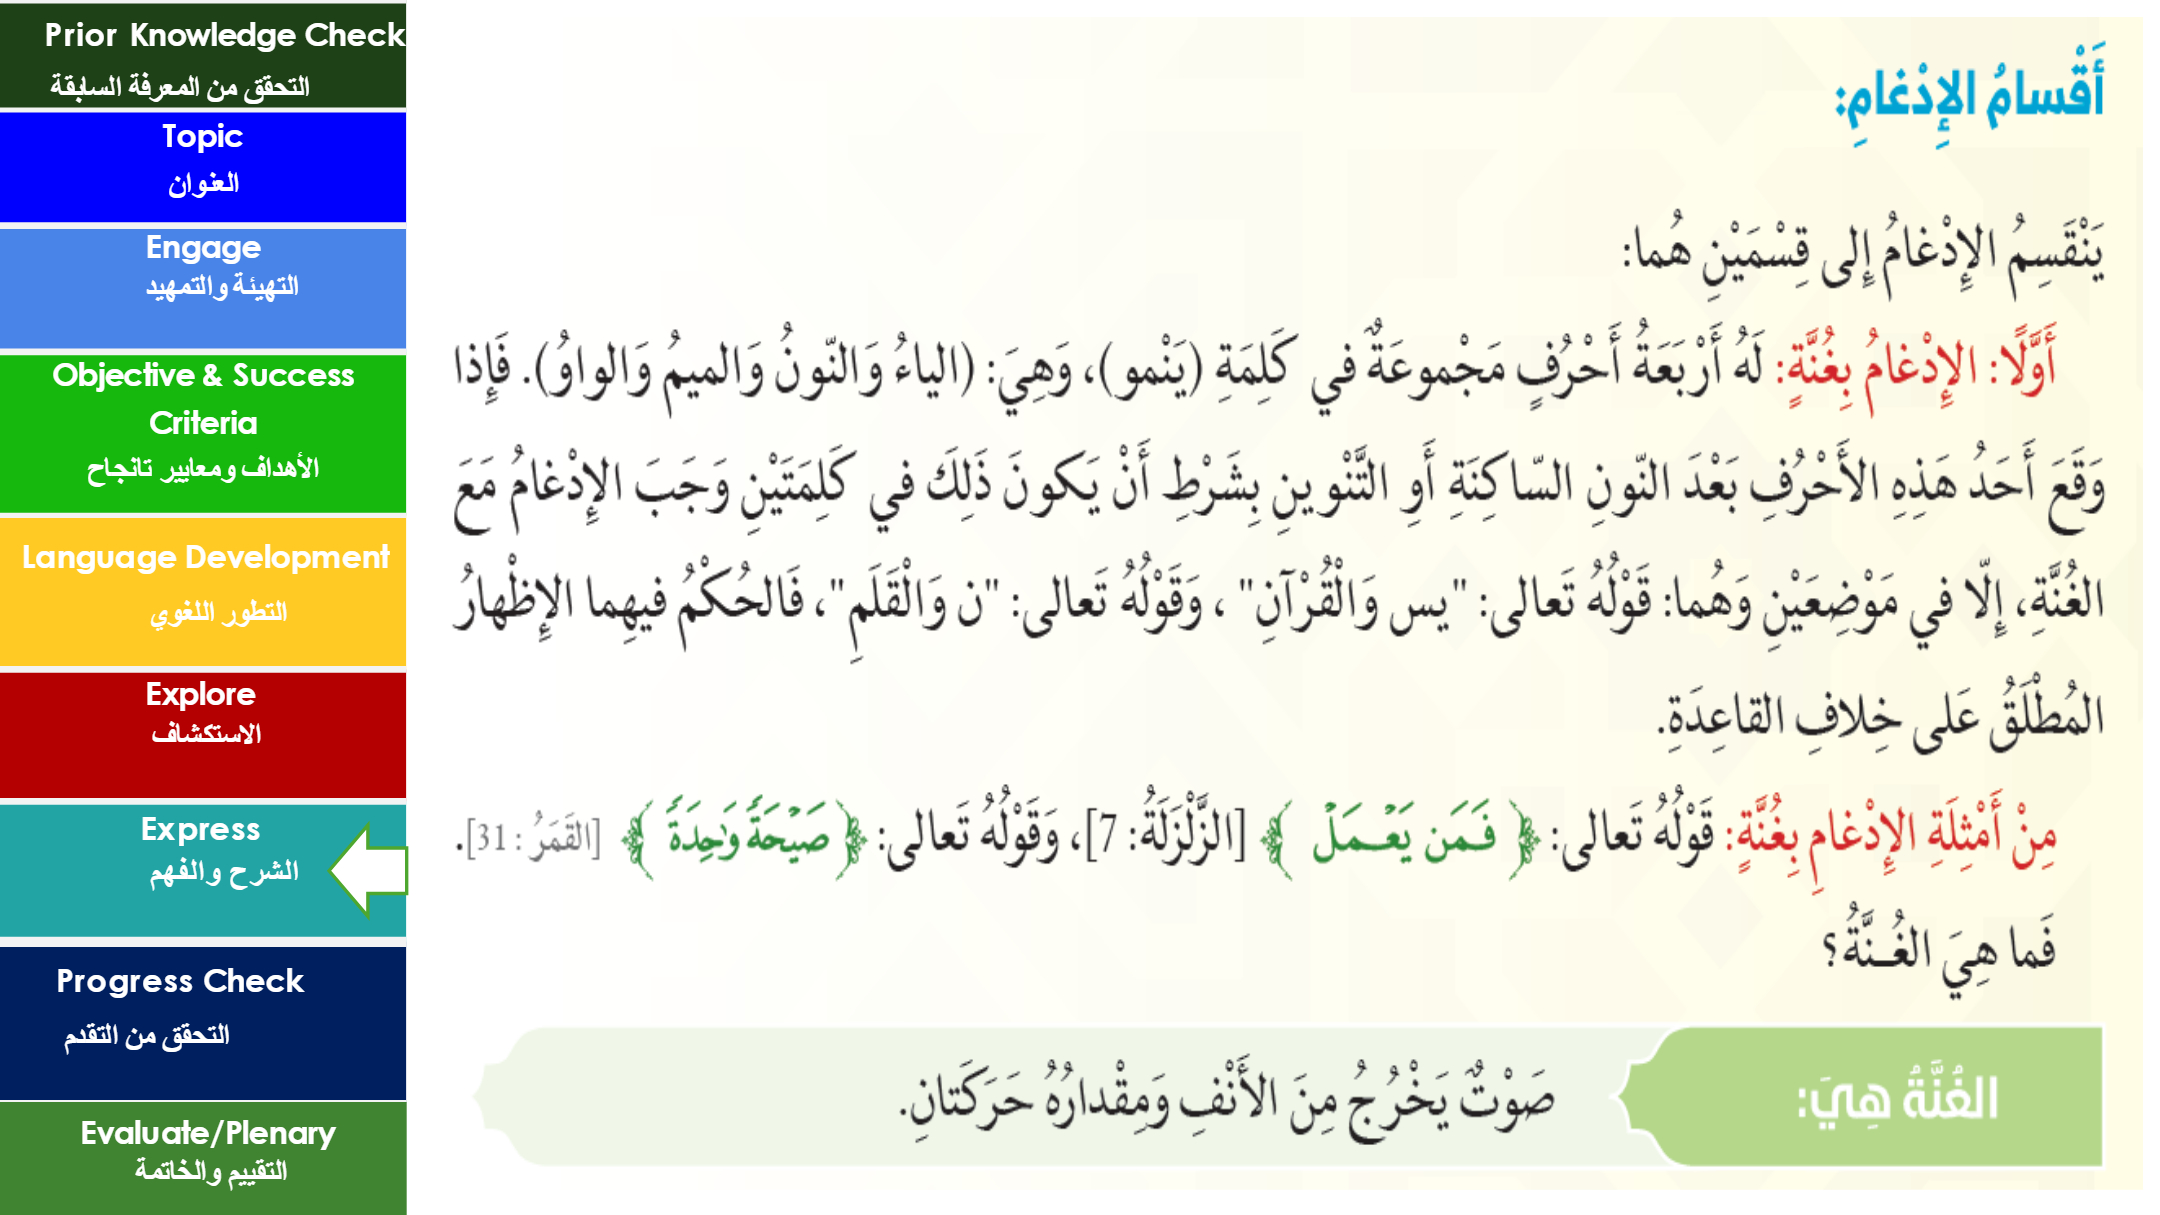 Prior Knowledge Check
التحقق من المعرفة السابقة
Topic
العنوان
Engage
التهيئة والتمهيد
Objective & Success
Criteria
الأهداف ومعايير تانجاح
Language Development
التطور اللغوي
Explore
الاستكشاف
Express
الشرح والفهم
Progress Check
التحقق من التقدم
Evaluate/Plenary
التقييم والخاتمة
أَقْسامُ الإِدْغامِ:
يَنْقَسِمُ الإِدْغامُ إِلى قِسْمَيْنِ هُما:
أَوَّلًا: الإِدْغامُ بِغُنَّةٍ: لَهُ أَرْبَعَةُ أَحْرُفٍ مَجْموعَةٌ في كَلِمَةِ (يَنْمو)، وَهِيَ: (الياءُ وَالنّونُ وَالميمُ وَالواوُ). فَإِذا
وَقَعَ أَحَدُ هَذِهِ الأَحْرُفِ بَعْدَ النّونِ السّاكِنَةِ أَوِ التَّنْوينِ بِشَرْطِ أَنْ يَكونَ ذَلِكَ في كَلِمَتَيْنِ وَجَبَ الإِدْغامُ مَعَ
الغُنَّةِ، إِلّا في مَوْضِعَيْنِ وَهُما: قَوْلُهُ تَعالى: "يس وَالْقُرْآنِ" ، وَقَوْلُهُ تَعالى: "ن وَالْقَلَمِ"، فَالحُكْمُ فيهِما الإِظْهارُ
المُطْلَقُ عَلى خِلافِ القاعِدَةِ.
مِنْ أَمْثِلَةِ الإِدْغامِ بِغُنَّةٍ: قَوْلُهُ تَعالى: ﴿ فَمَن يَعْمَلْ ﴾ [الزَّلْزَلَةُ: 7]، وَقَوْلُهُ تَعالى: ﴿ صَيْحَةً وَٰحِدَةً ﴾ [القَمَرُ: 31].
فَما هِيَ الغُـنَّةُ؟
الغُنَّةُ هِيَ:
صَوْتٌ يَخْرُجُ مِنَ الأَنْفِ وَمِقْدارُهُ حَرَكَتانِ.